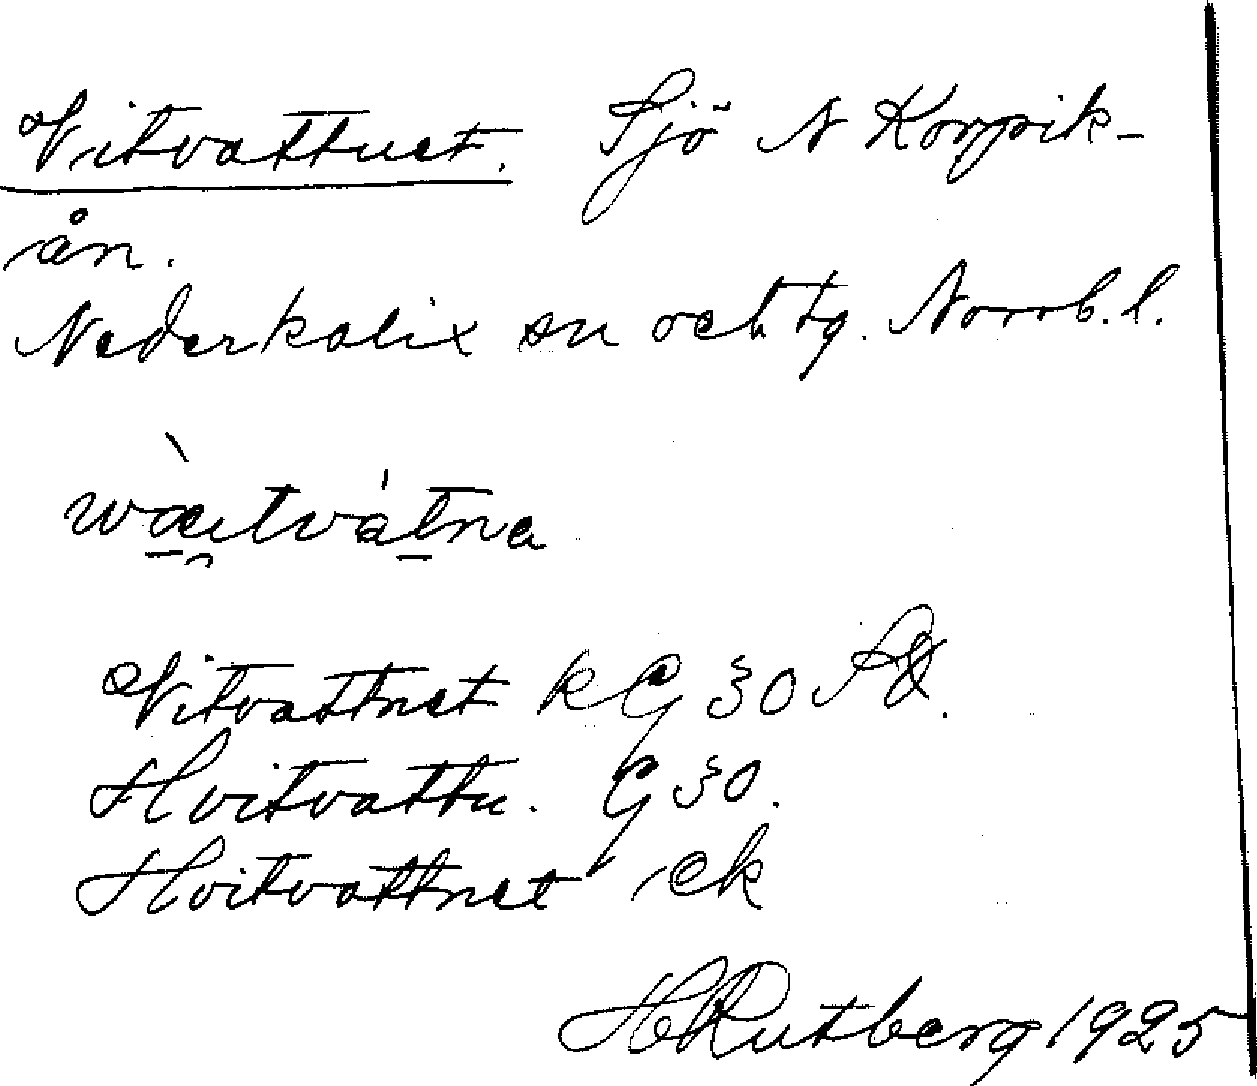 Vitvattnet. Sjö N Korpik-
ån.
Nederkalix sn och tg. Norrb. l.
wæ̀i̯tvát̠na
Vitvattnet k G 30
Hvitvattn. G 30.
Hvitvattnet ek
H Rutberg 1925